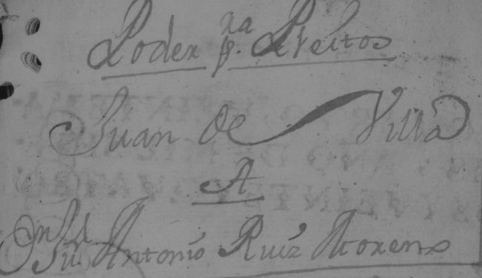 Poder pra. Pleitos
Juan de Villa
A
Antonio Ruiz Moreno